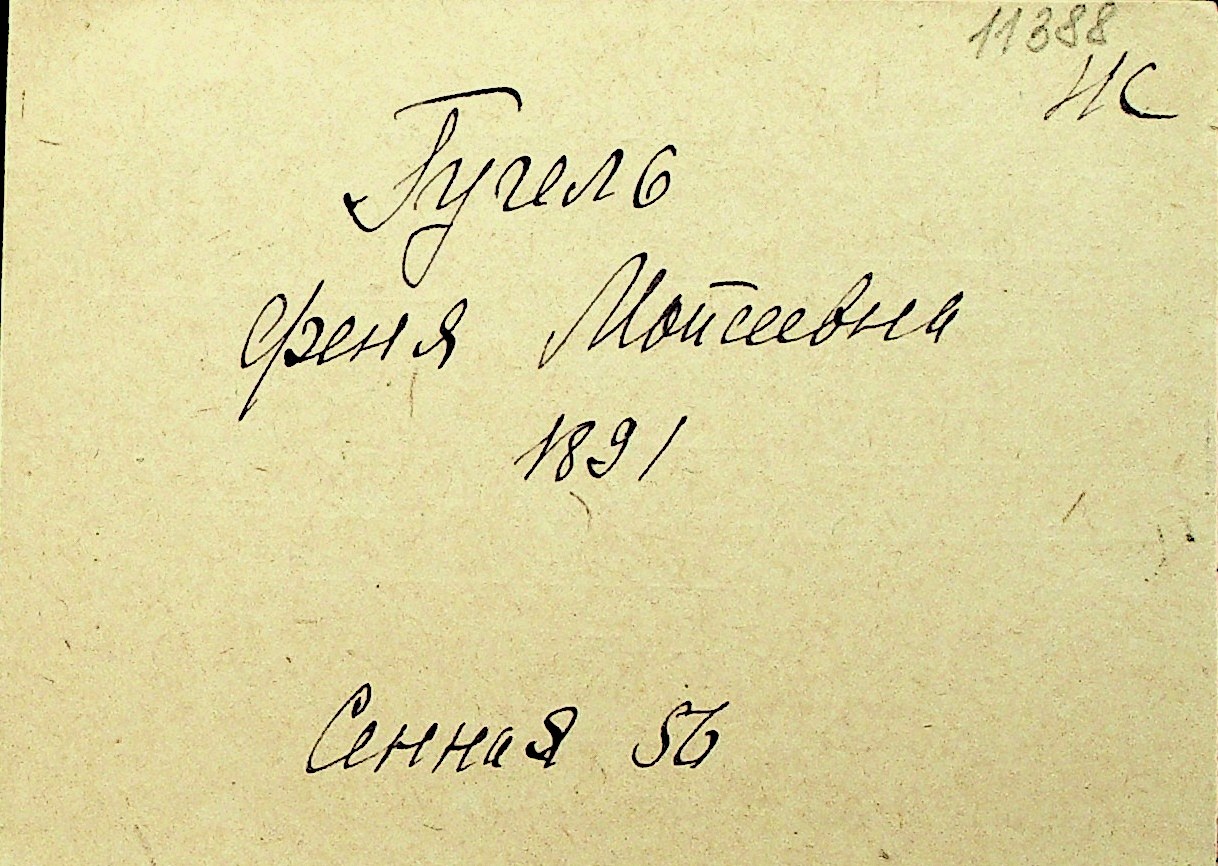 11388
НС
Гугель
Феня Мойсеевна
1891
Сенная 56